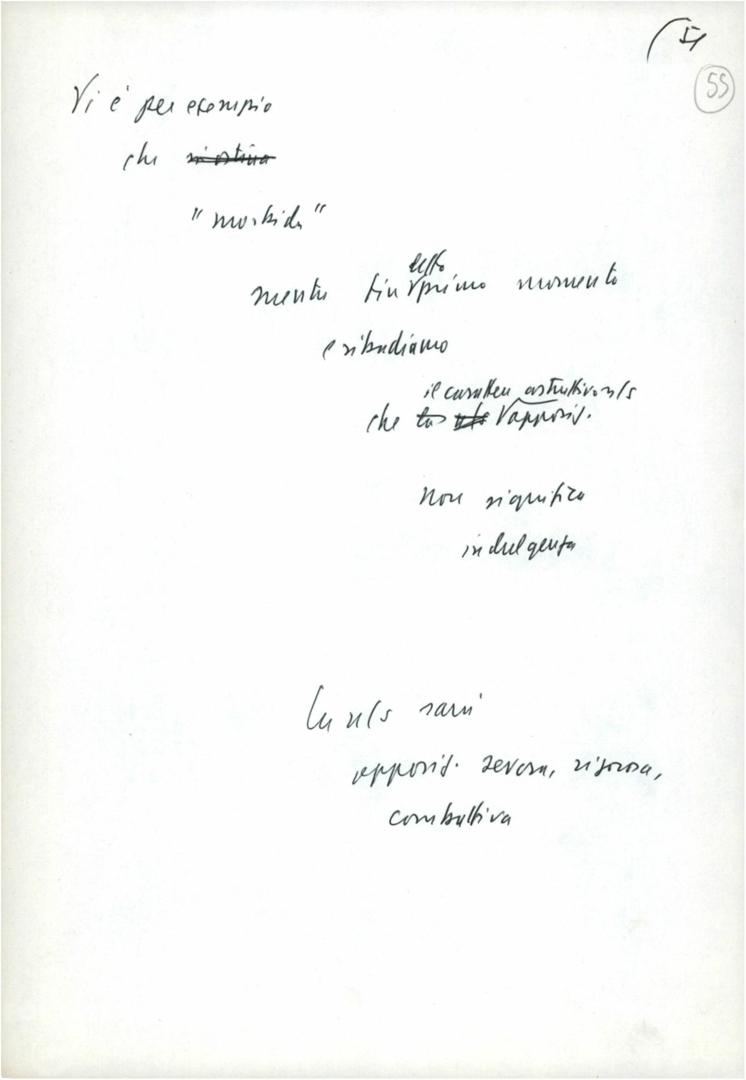 51
55
Vi è per esempio
che si ostina
"morbida"
mentre fin
detto
primo momento
e ribadiamo
il carattere costruttivo n/s
che la apposiz.
non significa
indulgenza
La n/s sarà
opposiz. severa, rigorosa,
combattiva